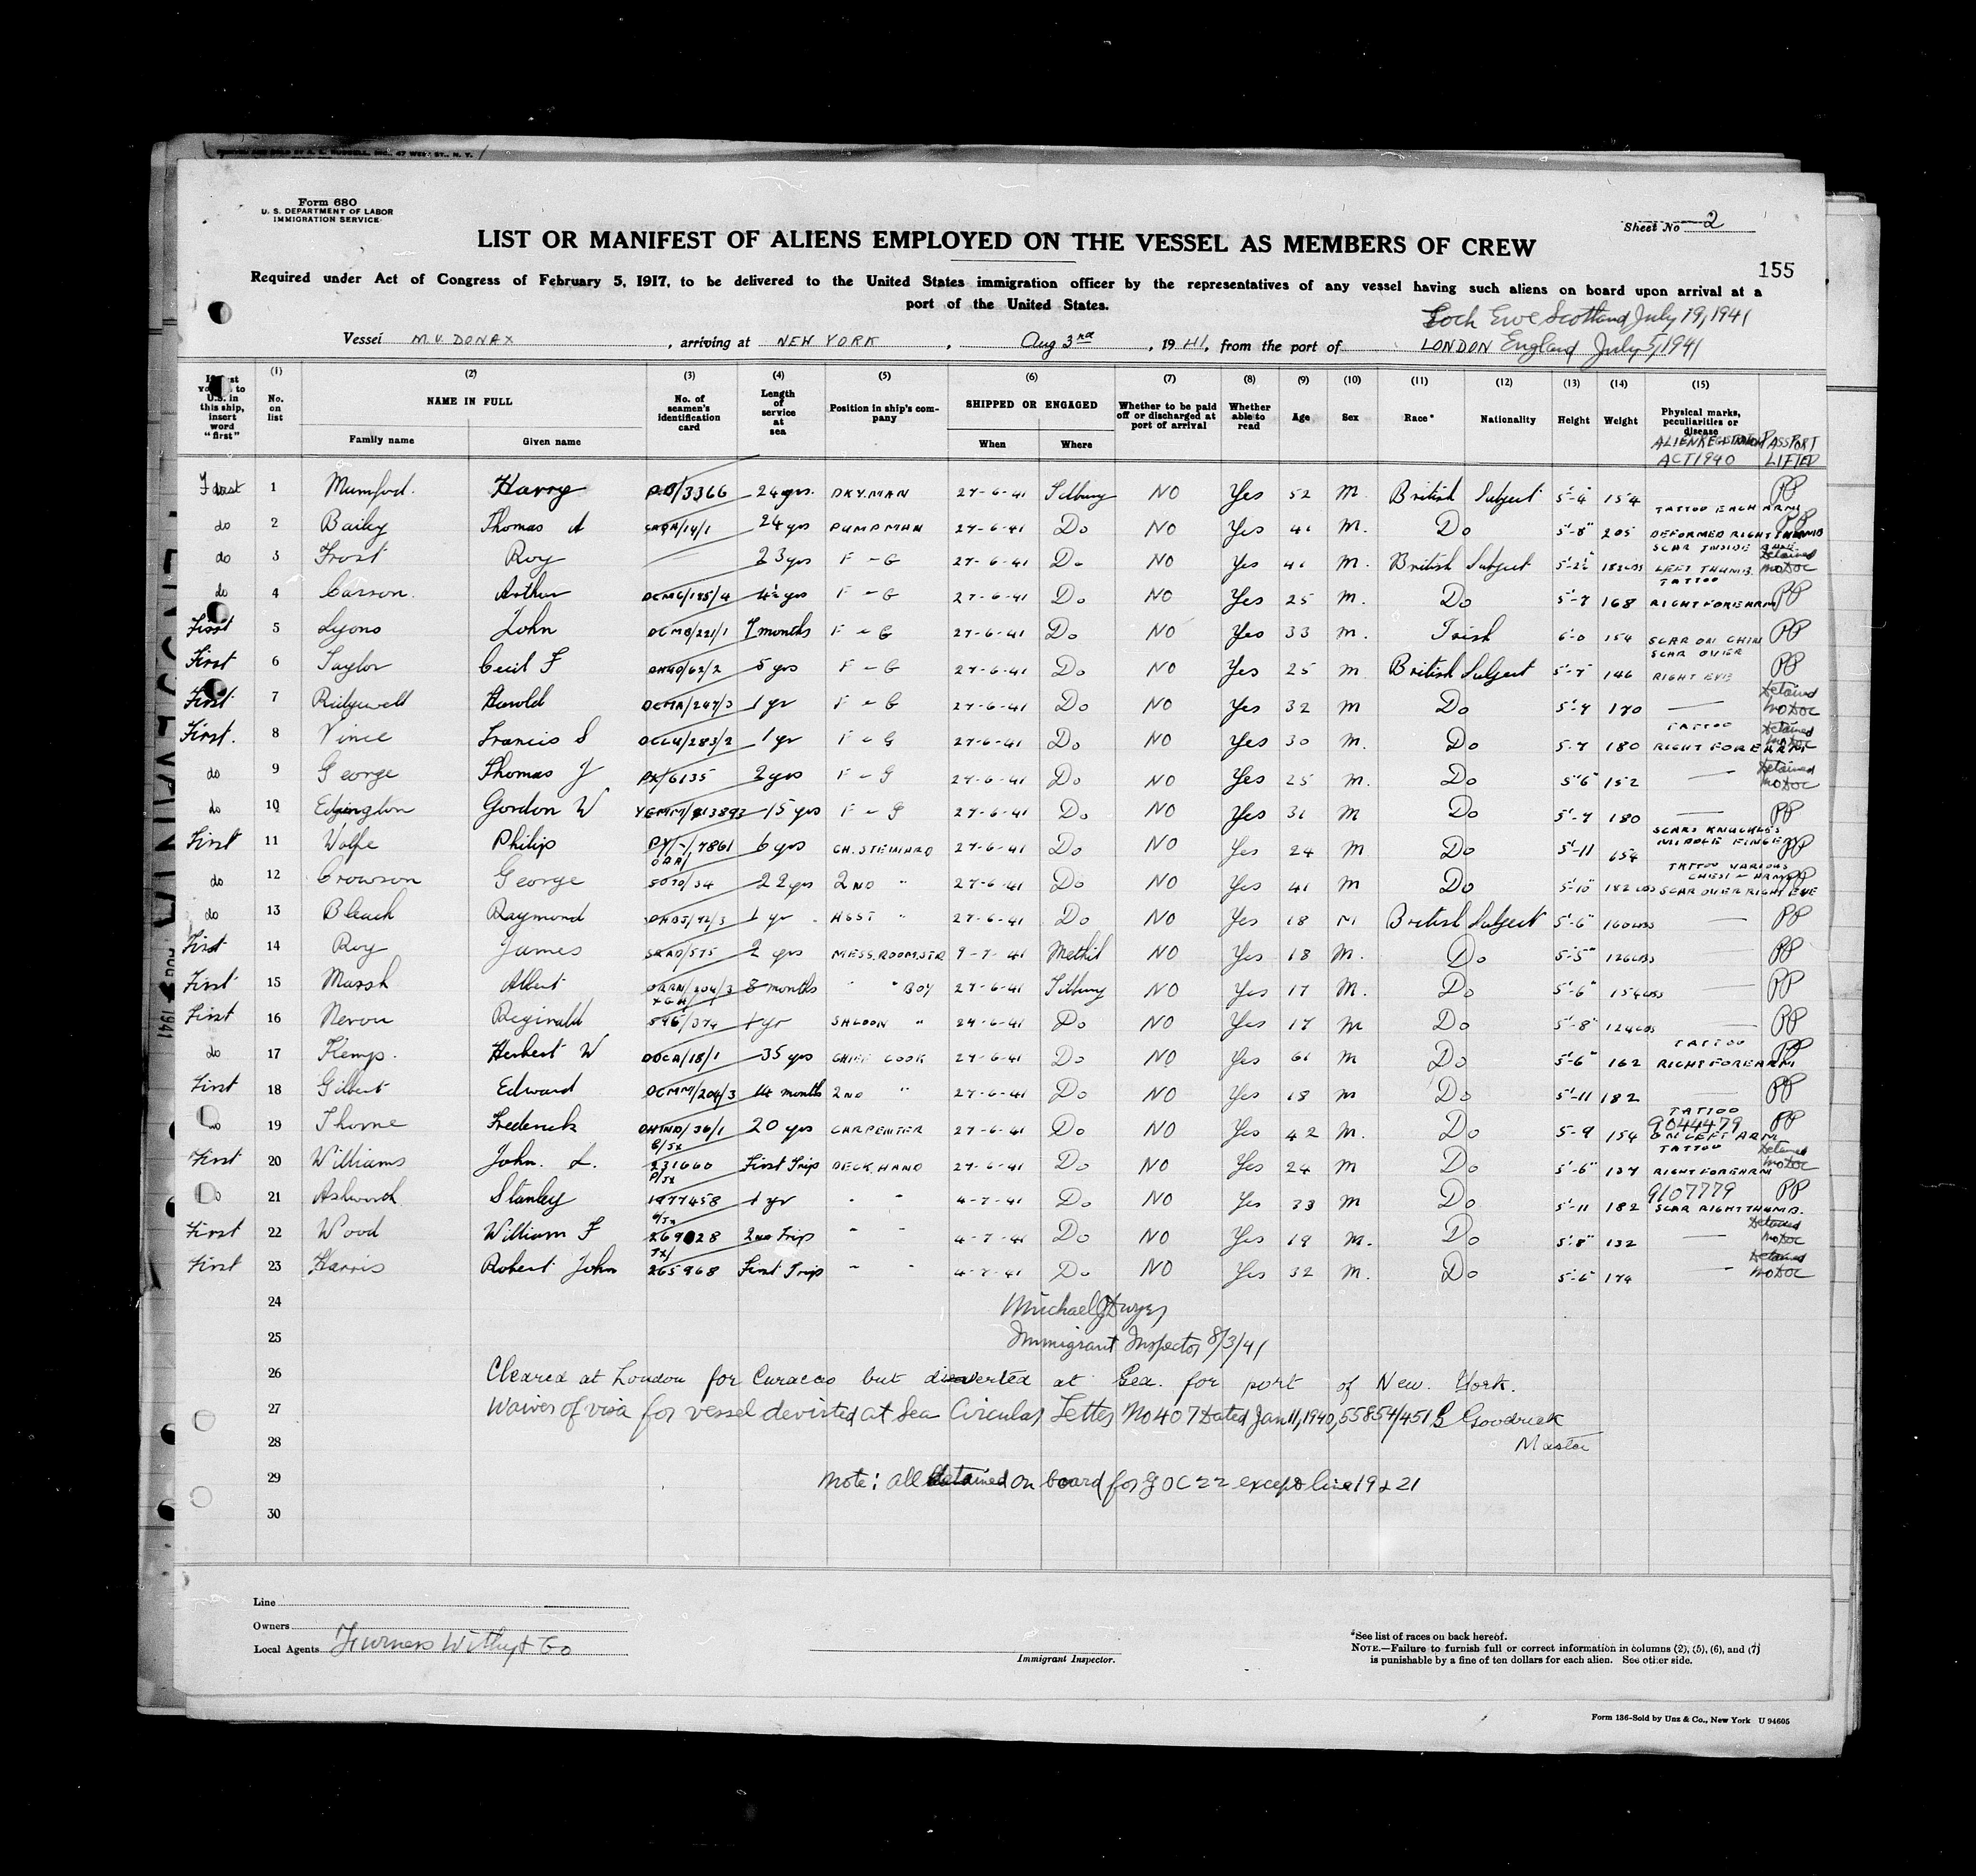 Form 680
U. S. DEPARTMENT OF LABOR
IMMIGRATION SERVICE
Sheet No 2
LIST OR MANIFEST OF ALIENS EMPLOYED ON THE VESSEL AS MEMBERS OF CREW
155
Required under Act of Congress of February 5, 1917, to be delivered to the United States immigration officer by the representatives of any vessel having such aliens on board upon arrival at a
port of the United States.
Loch Ewe Scotland July 19, 1941
Vessel M.V. DONAX, arriving at NEW YORK, Aug 3rd, 1941, from the port of LONDON England July 5, 1941
(1) (2) (3) (4) (5) (6) (7) (8) (9) (10) (11) (12) (13) (14) (15)
U.S. in this ship, insert word "first" No. on list NAME IN FULL Family name Given name No. of seamen's identification card Length of service at sea Position in ship's company SHIPPED OR ENGAGED When Where Whether to be paid off or discharged at port of arrival Whether able to read Age Sex Race* Nationality Height Weight Physical marks, peculiarities or disease
ALIEN REGISTRATION ACT 1940 PASSPORT LIFTED
1 Mumford. Harry 3366 24 yrs. DKY.MAN 27-6-41 Tilbury NO Yes 52 M. British Subject 5'-4" 154 TATTOO EACH ARM PP
do 2 Bailey Thomas A 24 yrs PUMPMAN 27-6-41 Do NO Yes 41 M. Do 5'-8" 205 DEFORMED RIGHT THUMB PP
do 3 Frost Roy 23 yrs F - G 27-6-41 Do NO Yes 41 M. British Subject 182 LBS SCAR INSIDE LEFT THUMB. Detained no Doc
do 4 Carson. Arthur DCMG/195/4 4½ yrs F - G 27-6-41 Do NO Yes 25 M. Do 5'-7 168 TATTOO RIGHT FOREARM PP
First 5 Lyons John DCMB/221/1 7 months F - G 27-6-41 Do NO Yes 33 M. Irish 6'-0 154 SCAR ON CHIN PP
First 6 Taylor Cecil F 5 yrs F - G 27-6-41 Do NO Yes 25 M British Subject 5'-7" 146 SCAR OVER RIGHT EYE PP
First 7 Ridgwell Harold DCMA/247/3 1 yr F - G 27-6-41 Do NO Yes 32 M Do 5'-7 170 Detained no Doc
First. 8 Vince Francis S 1 yr F - G 27-6-41 Do NO Yes 30 M. Do 5-7 180 TATTOO RIGHT FOREARM Detained no Doc
do 9 George Thomas J PX/6135 2 yrs F - G 27-6-41 Do NO Yes 25 M. Do 5'6" 152 Detained no Doc
do 10 Edgington Gordon W 15 yrs F - G 27-6-41 Do NO Yes 31 M Do 5'-7 180 PP
First 11 Wolfe Philip 6 yrs CH. STEWARD 27-6-41 Do NO Yes 24 M Do 5'-11 654 SCARS KNUCKLES MIDDLE FINGER PP
do 12 Crowson George 22 yrs 2ND " 27-6-41 Do NO Yes 41 M Do 5'-10" 182 LBS TATTOO VARIOUS CHEST & ARMS SCAR OVER RIGHT EYE PP
do 13 Bleach Raymond 1 yr ASST " 27-6-41 Do NO Yes 18 M British Subject 5'-6" 160 LBS PP
First 14 Roy James 2 yrs MESS.ROOM.STR 9-7-41 Methil NO Yes 18 M. Do 5'-5" 126 LBS PP
First 15 Marsh Albert 8 months " " BOY 27-6-41 Tilbury NO Yes 17 M. Do 5'-6" 154 LBS PP
First 16 Reginald 1 yr SALOON " 24-6-41 Do NO Yes 17 M Do 5'-8" 124 LBS PP
do 17 Kemp. Herbert W DOCA/18/1 35 yrs CHIEF COOK 27-6-41 Do NO Yes 61 M Do 5'-6" 162 TATTOO RIGHT FOREARM PP
First 18 Gilbert Edward DCMM/204/3 14 months 2ND " 27-6-41 Do NO Yes 18 M Do 5'-11 182 PP
19 Thorne Frederick 20 yrs CARPENTER 27-6-41 Do NO Yes 42 M. Do 5-9 154 TATTOO 9044479 ON LEFT ARM PP
First 20 Williams John. L. 231660 First Trip DECK HAND 27-6-41 Do NO Yes 24 M Do 5'-6" 137 TATTOO RIGHT FOREARM Detained no Doc
21 Ashworth Stanley 1977458 1 yr " " 4-7-41 Do NO Yes 33 M Do 5'-11 182 9107779 SCAR RIGHT THUMB. PP
First 22 Wood William F 2nd Trip " " 4-7-41 Do NO Yes 19 M. Do 5'-8" 132 Detained no Doc
First 23 Harris Robert John 265968 First Trip " " 4-7-41 Do NO Yes 32 M. Do 5'-6" 174 Detained no Doc
24 Michael J Dwyer
25 Immigrant Inspector 8/3/41
26 Cleared at London for Curacao but diverted at Sea. for port of New. York.
27 Waiver of visa for vessel devirted at Sea Circular Letter No 407 Dated Jan 11, 1940, 55854/451 Goodrick
28 Master
29 Note: all detained on board for except line 19 & 21
30
Line
Owners
Local Agents Furness Withy & Co
Immigrant Inspector.
*See list of races on back hereof.
NOTE.—Failure to furnish full or correct information in columns (2), (5), (6), and (7)
is punishable by a fine of ten dollars for each alien. See other side.
Form 136-Sold by Unz & Co., New York U 94605